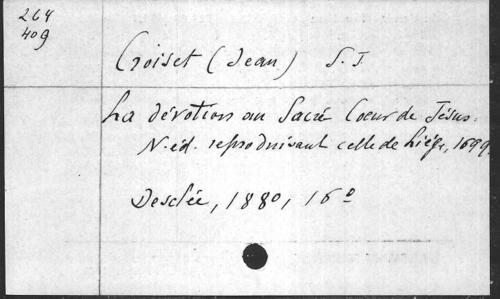 264
409
Croiset (Jean) S. J
La dévotion au Sacré Coeur de Jésus.
N. éd. reproduisant celle de Liége, 1699.
Desclée, 1880, 16º